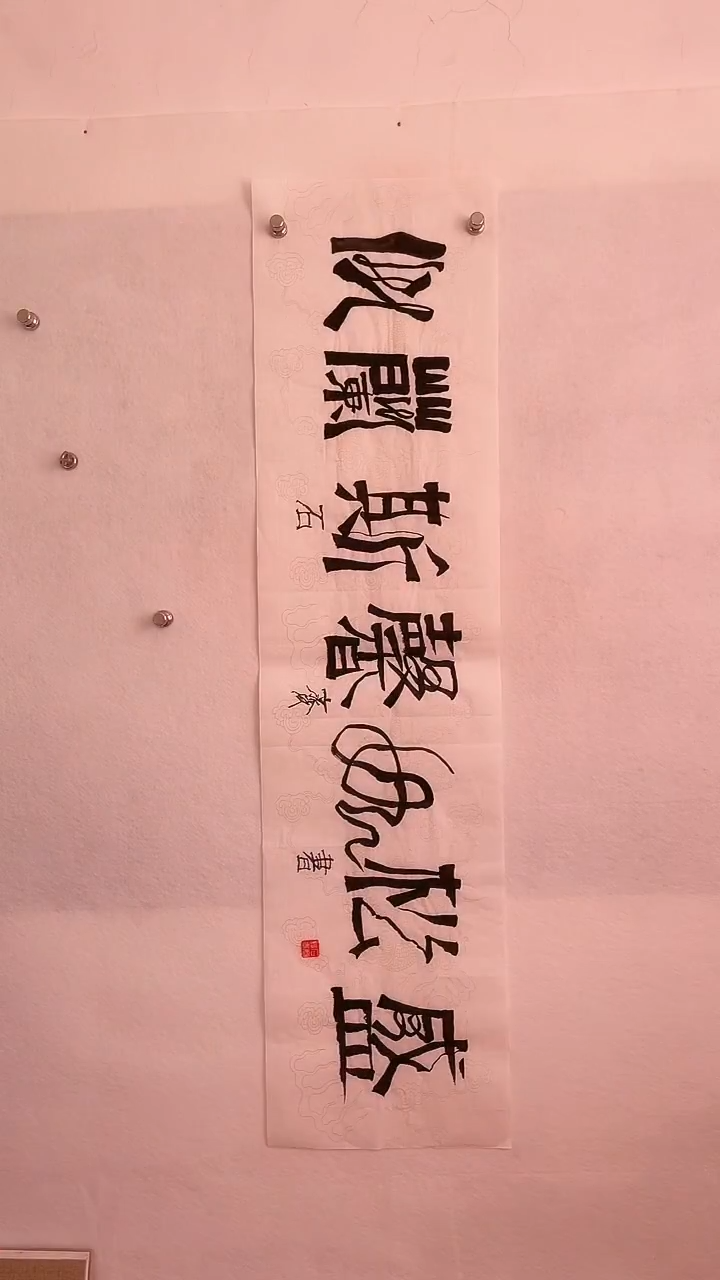 似蘭斯馨如松盛
石 書